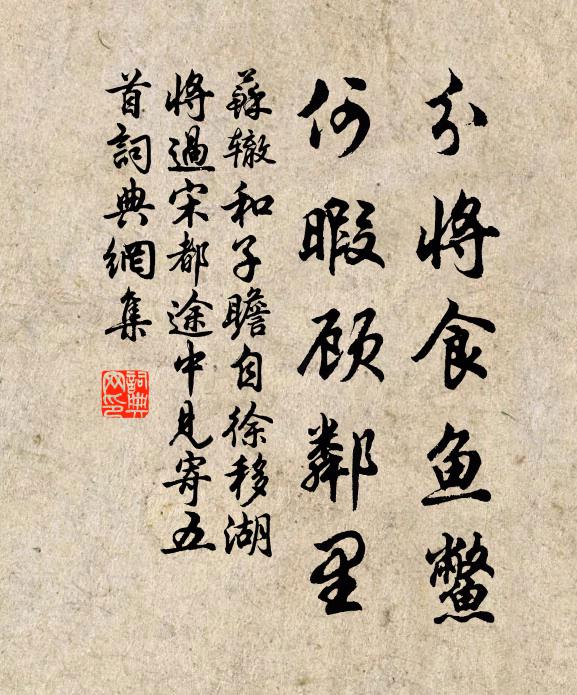 分将食鱼鳖
何暇顾鄰里
蘇辙和子瞻自徐移湖
将過宋都途中見寄五
首詞典網集
詞典
网印